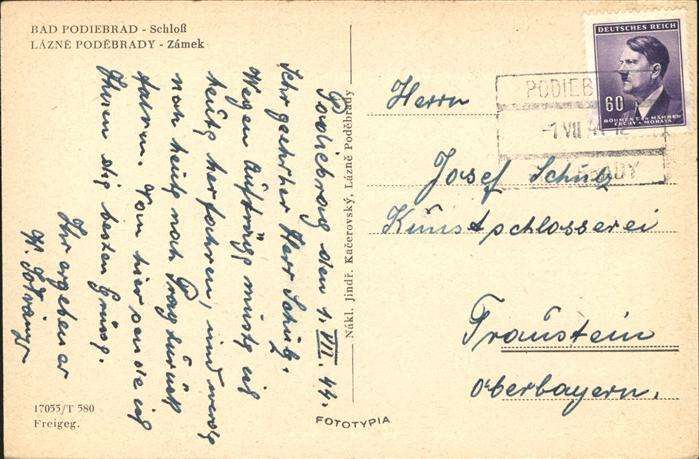 BAD PODIEBRAD - Schloß
LÁZNĚ PODĚBRADY - Zámek
Podiebrad den 1. VII. 44.
Sehr geehrter Herr Schulz.
Wegen Aufträge mußte ich
heute herfahren, und werde
noch heute nach Prag zurück
fahren. Von hier sende ich
Ihnen die besten Grüße.
Ihr ergebener
17055/T 580
Freigeg.
Nákl. Jindř. Kačerovský, Lázně Poděbrady
FOTOTYPIA
DEUTSCHES REICH
60
BÖHMEN U. MÄHREN
ČECHY A MORAVA
PODIEB
-1 VII 4
ADY
Herrn
Josef Schulz
Kunstschlosserei
Traunstein
Oberbayern.